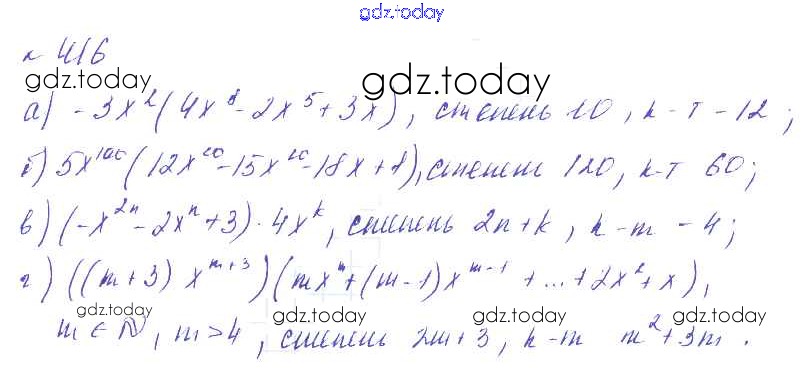 gdz.today
№ 416
gdz.today gdz.today
а) -3x²(4x⁸-2x⁵+3x), степень 10, к-т -12;
б) 5x¹⁰⁰(12x²⁰-15x¹⁰-18x+1), степень 120, к-т 60;
в) (-x²ⁿ-2xⁿ+3)·4xᵏ, степень 2n+k, к-т -4;
г) ((m+3) xᵐ⁺³)(mxᵐ+(m-1)xᵐ⁻¹ + ... + 2x²+x),
gdz.today gdz.today gdz.today gdz.today
m ∈ N, m>4, степень 2m+3, к-т m²+3m.